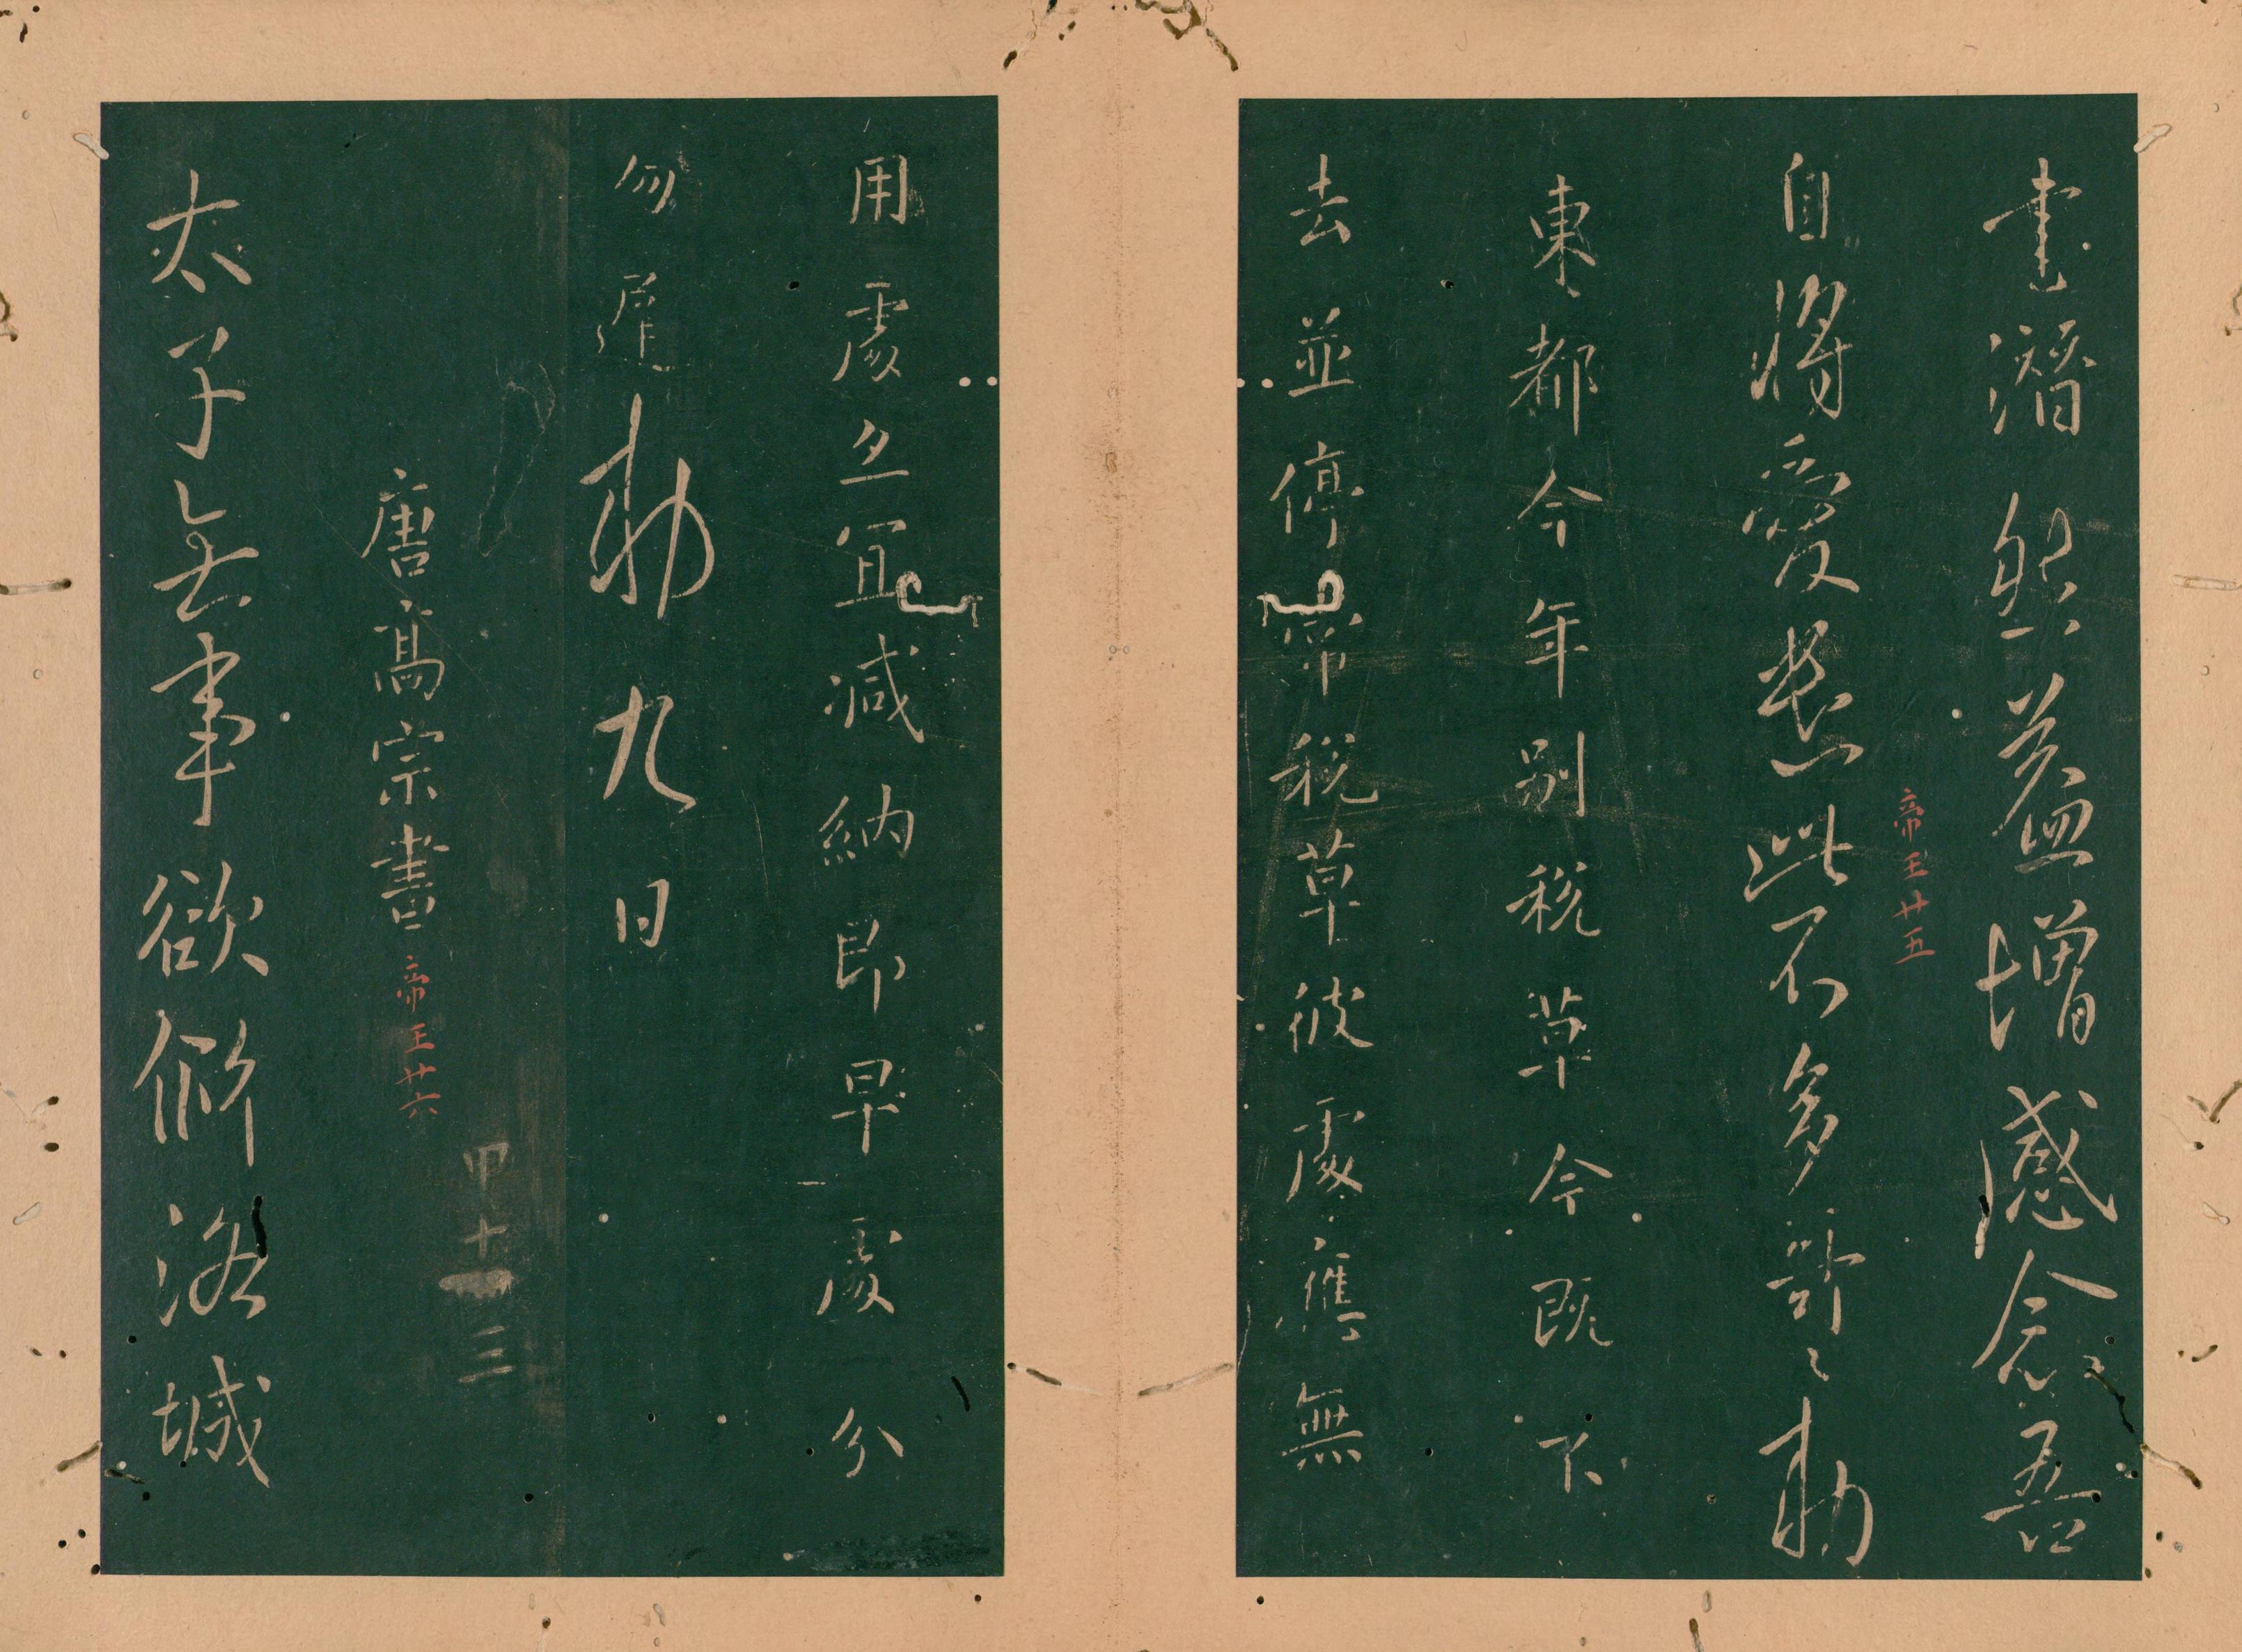 書潛然益增感念善
帝王廿五
自將愛此不多哥〻勅
東都今年別稅草今既不
去並停常稅草彼處應無
用處亦宜減納即早處分
勿遲勅九日
甲十三
唐高宗書
帝王廿六
太子無事欲洛城